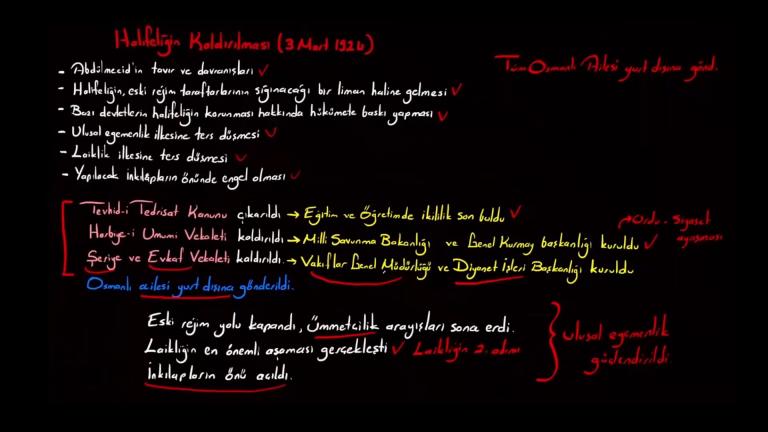 Halifeliğin Kaldırılması (3 Mart 1924)
Tüm Osmanlı Ailesi yurt dışına gönd.
- Abdülmecid'in tavır ve davranışları ✓
- Halifeliğin, eski rejim taraftarlarının sığınacağı bir liman haline gelmesi ✓
- Bazı devletlerin halifeliğin korunması hakkında hükümete baskı yapması ✓
- Ulusal egemenlik ilkesine ters düşmesi ✓
- Laiklik ilkesine ters düşmesi ✓
- Yapılacak inkılapların önünde engel olması ✓
Tevhid-i Tedrisat Kanunu çıkarıldı → Eğitim ve Öğretimde ikililik son buldu ✓
Harbiye-i Umumi Vekaleti kaldırıldı → Milli Savunma Bakanlığı ve Genel Kurmay başkanlığı kuruldu ✓
→ Ordu - Siyaset
ayrışması
Şeriye ve Evkaf Vekaleti kaldırıldı. → Vakıflar Genel Müdürlüğü ve Diyanet İşleri Başkanlığı kuruldu
Osmanlı ailesi yurt dışına gönderildi.
Eski rejim yolu kapandı, Ümmetcilik arayışları sona erdi.
Laikliğin en önemli aşaması gerçekleşti ✓ Laikliğin 2. adımı
İnkılapların önü açıldı.
Ulusal egemenlik
güçlendirildi